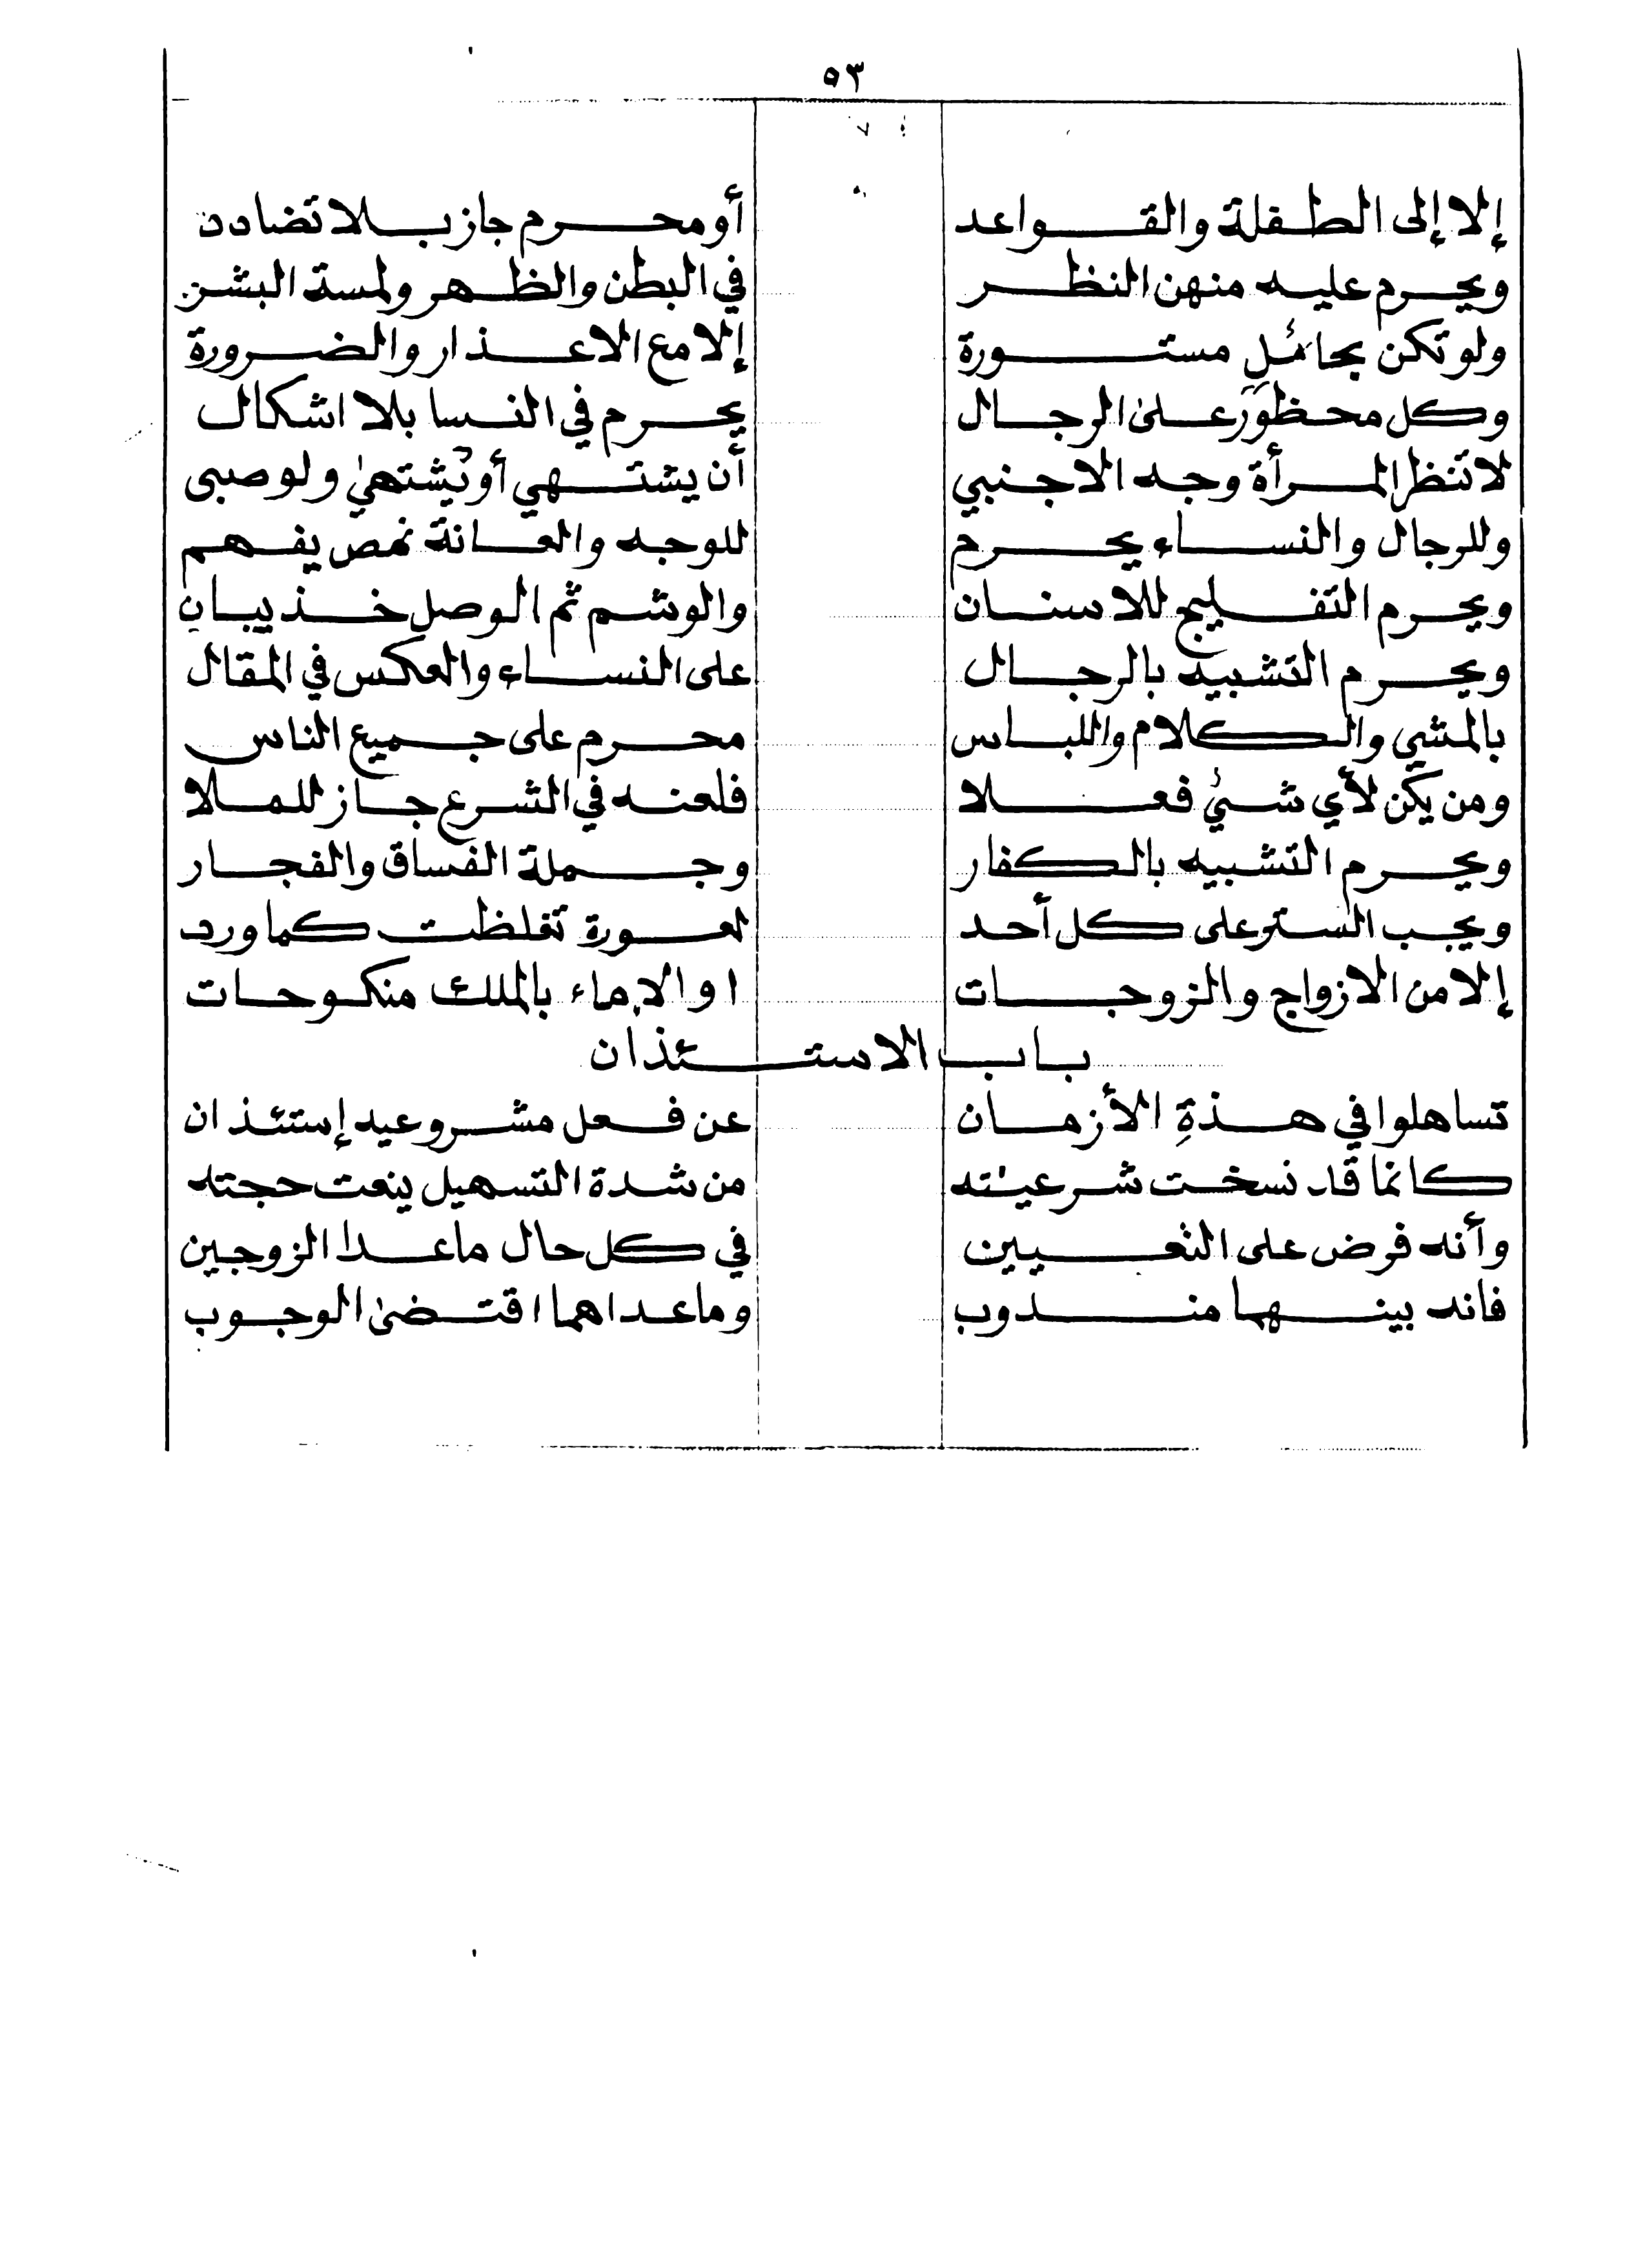 ٥٣
إلا إلى الطفلة والقواعد أو محرم جاز بلا تضادد
ويحرم عليه منهن النظر في البطن والظهر ولمسة البشر
ولو تكن بحائلٍ مستورة إلا مع الاعذار والضرورة
وكل محظور على الرجال يحرم في النسا بلا اشكال
لا تنظر المرأة وجه الاجنبي أن يشتهي أو تُشتهىٰ ولو صبى
وللرجال والنساء يحرم للوجه والعانة نمص يفهم
ويحرم التفليج للاسنان والوشم ثم الوصل خذ بيان
ويحرم التشبيه بالرجال على النساء والعكس في المقال
بالمشي والكلام واللباس محرم على جميع الناس
ومن يكن لأي شيُ فعلا فلعنه في الشرع جاز للملا
ويحرم التشبيه بالكفار وجملة الفساق والفجار
ويجب الستر على كل أحد لعورة تغلظت كما ورد
إلا من الازواج والزوجات او الإماء بالملك منكوحات
باب الاستئذان
تساهلوا في هذةِ الأزمان عن فعل مشروعيه إستئذان
كانما قد نسخت شرعيته من شدة التسهيل ينعت حجته
وأنه فرض على التعيين في كل حال ماعدا الزوجين
فانه بينهما مندوب وماعداهما اقتضىٰ الوجوب